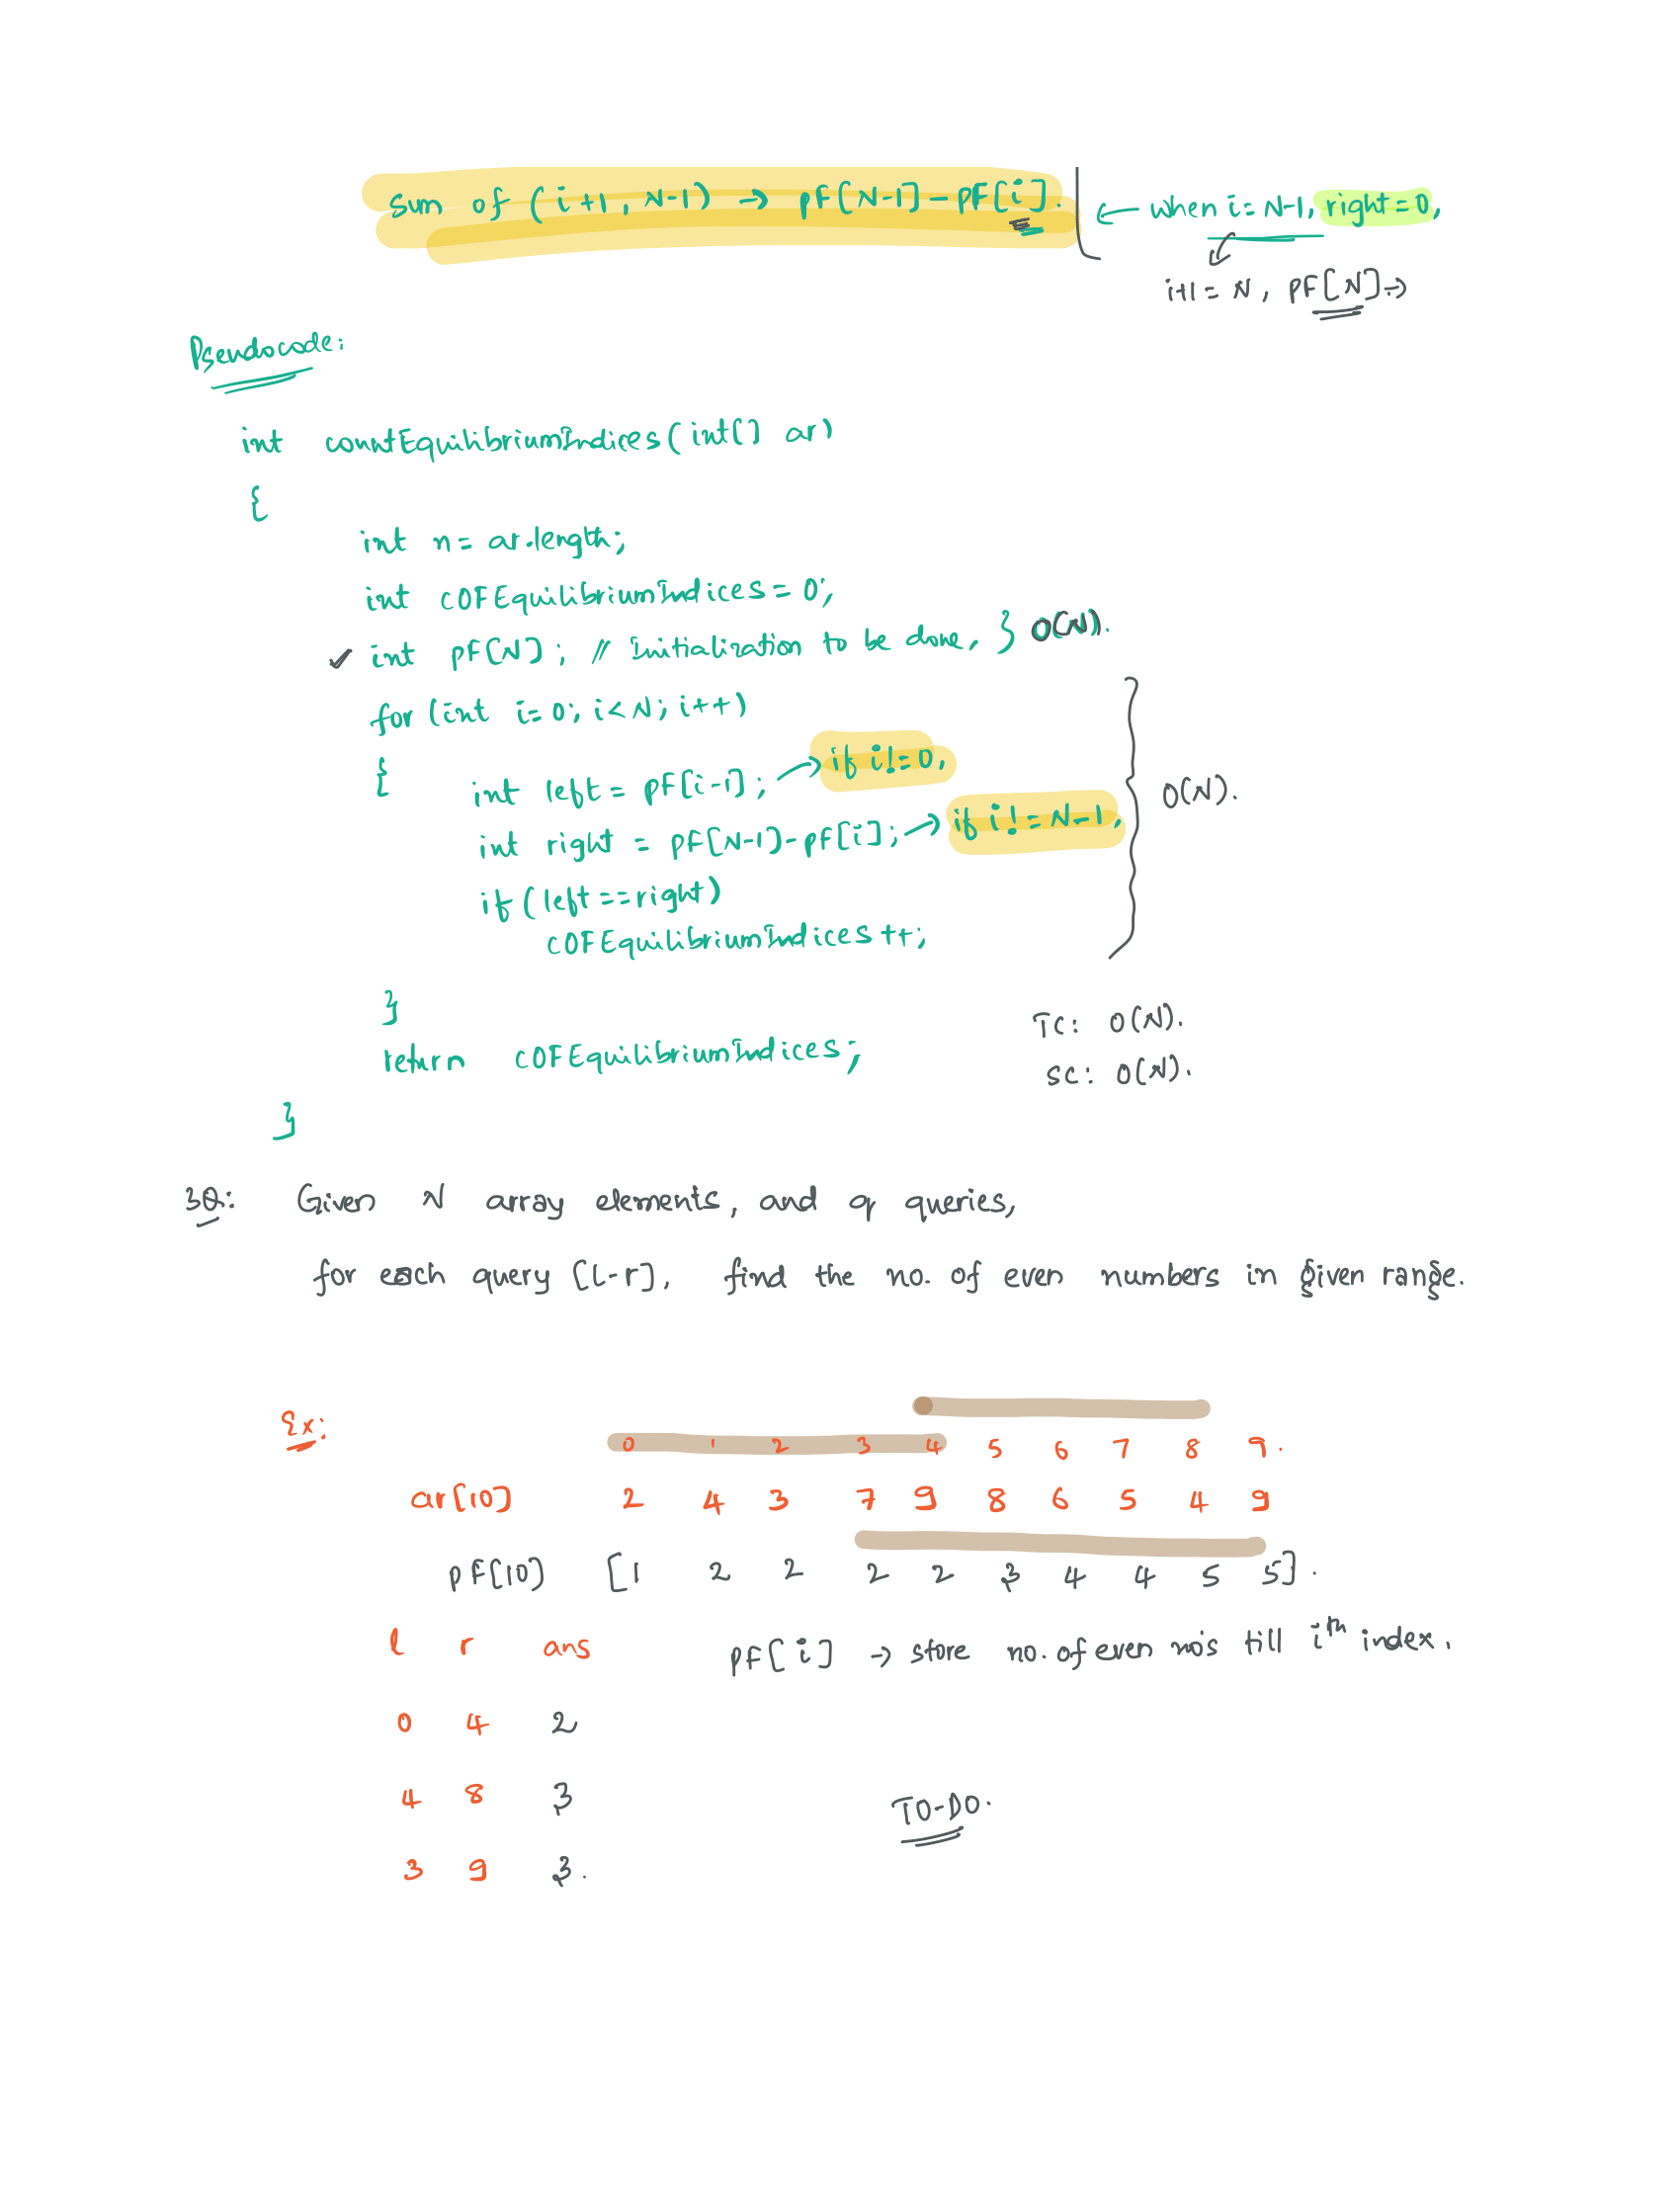 sum of (i+1, N-1) → PF[N-1]-PF[i]. ← when i=N-1, right=0,
i+1=N, PF[N]→
Pseudocode:
int countEquilibriumIndices(int[] ar)
{
int n= ar.length;
int COFEquilibriumIndices=0;
✓ int PF[N]; // Initialization to be done, } O(N).
for(int i=0; i<N; i++)
{
int left= PF[i-1]; → if i!=0,
int right = PF[N-1]-PF[i]; → if i!=N-1,
O(N).
if(left==right)
COFEquilibriumIndices++;
}
TC: O(N).
return COFEquilibriumIndices;
SC: O(N).
}
3Q: Given N array elements, and q queries,
for each query [l-r], find the no. of even numbers in given range.
Ex:
0 1 2 3 4 5 6 7 8 9.
ar[10] 2 4 3 7 9 8 6 5 4 9
PF[10] [1 2 2 2 2 3 4 4 5 5].
l r ans PF[i] → store no. of even no's till ith index,
0 4 2
4 8 3
TO-DO.
3 9 3.